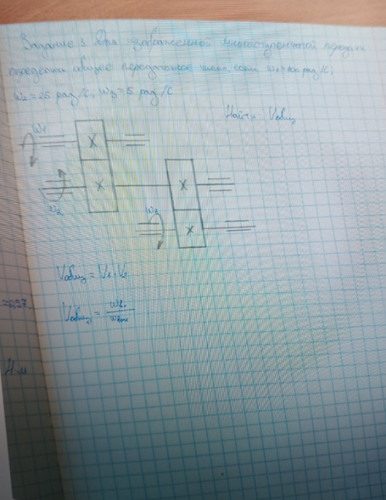 Задание 3. Для изображенной многоступенчатой передачи
определить общее передаточное число, если w₁=100 рад/с;
w₂=25 рад/с, w₃=5 рад/с
Найти: Uобщ
w₁
w₂
w₃
Uобщ = U₁·U₂
Uобщ =
Н·м